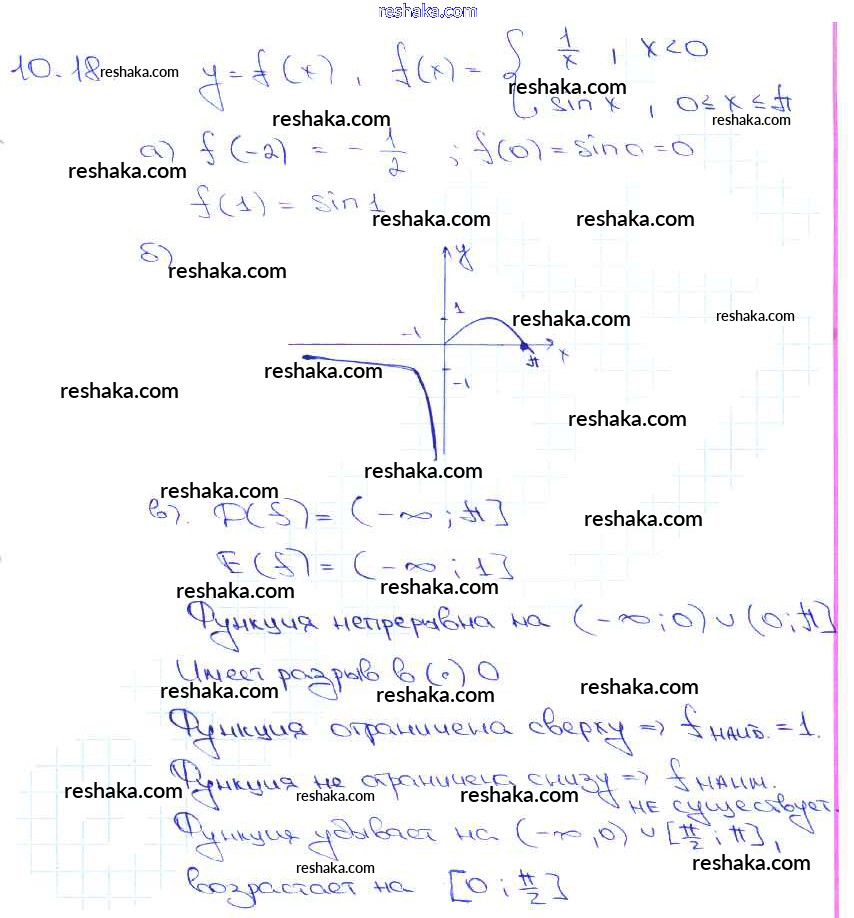 reshaka.com
10.18 reshaka.com y = f(x), f(x) = { 1/x, x<0
reshaka.com
sin x, 0 ≤ x ≤ π
reshaka.com reshaka.com
а) f(-2) = -1/2; f(0) = sin 0 = 0
reshaka.com
f(1) = sin 1
reshaka.com reshaka.com
б)
reshaka.com
y
1
reshaka.com reshaka.com
-1
π x
reshaka.com
-1
reshaka.com
reshaka.com
reshaka.com
reshaka.com
в). D(f) = (-∞; π]
reshaka.com
E(f) = (-∞; 1]
reshaka.com reshaka.com
Функция непрерывна на (-∞; 0) ∪ (0; π]
Имеет разрыв в (.) 0
reshaka.com reshaka.com reshaka.com
Функция ограничена сверху => fнаиб. = 1.
Функция не ограничена снизу => fнаим.
reshaka.com reshaka.com reshaka.com
не существует.
Функция убывает на (-∞, 0) ∪ [π/2; π],
reshaka.com reshaka.com
возрастает на [0; π/2]